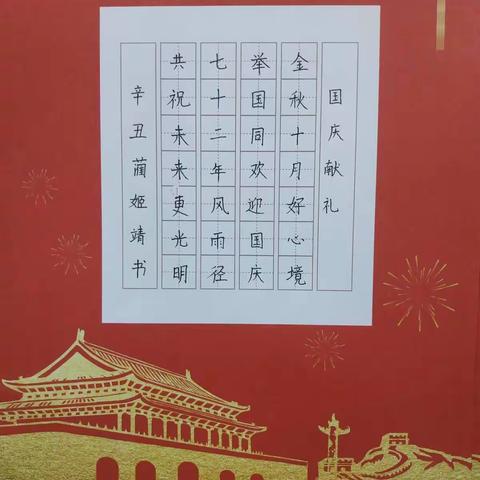 国庆献礼
金秋十月好心境
举国同欢迎国庆
七十二年风雨径
共祝未来更光明
辛丑蔺姬靖书